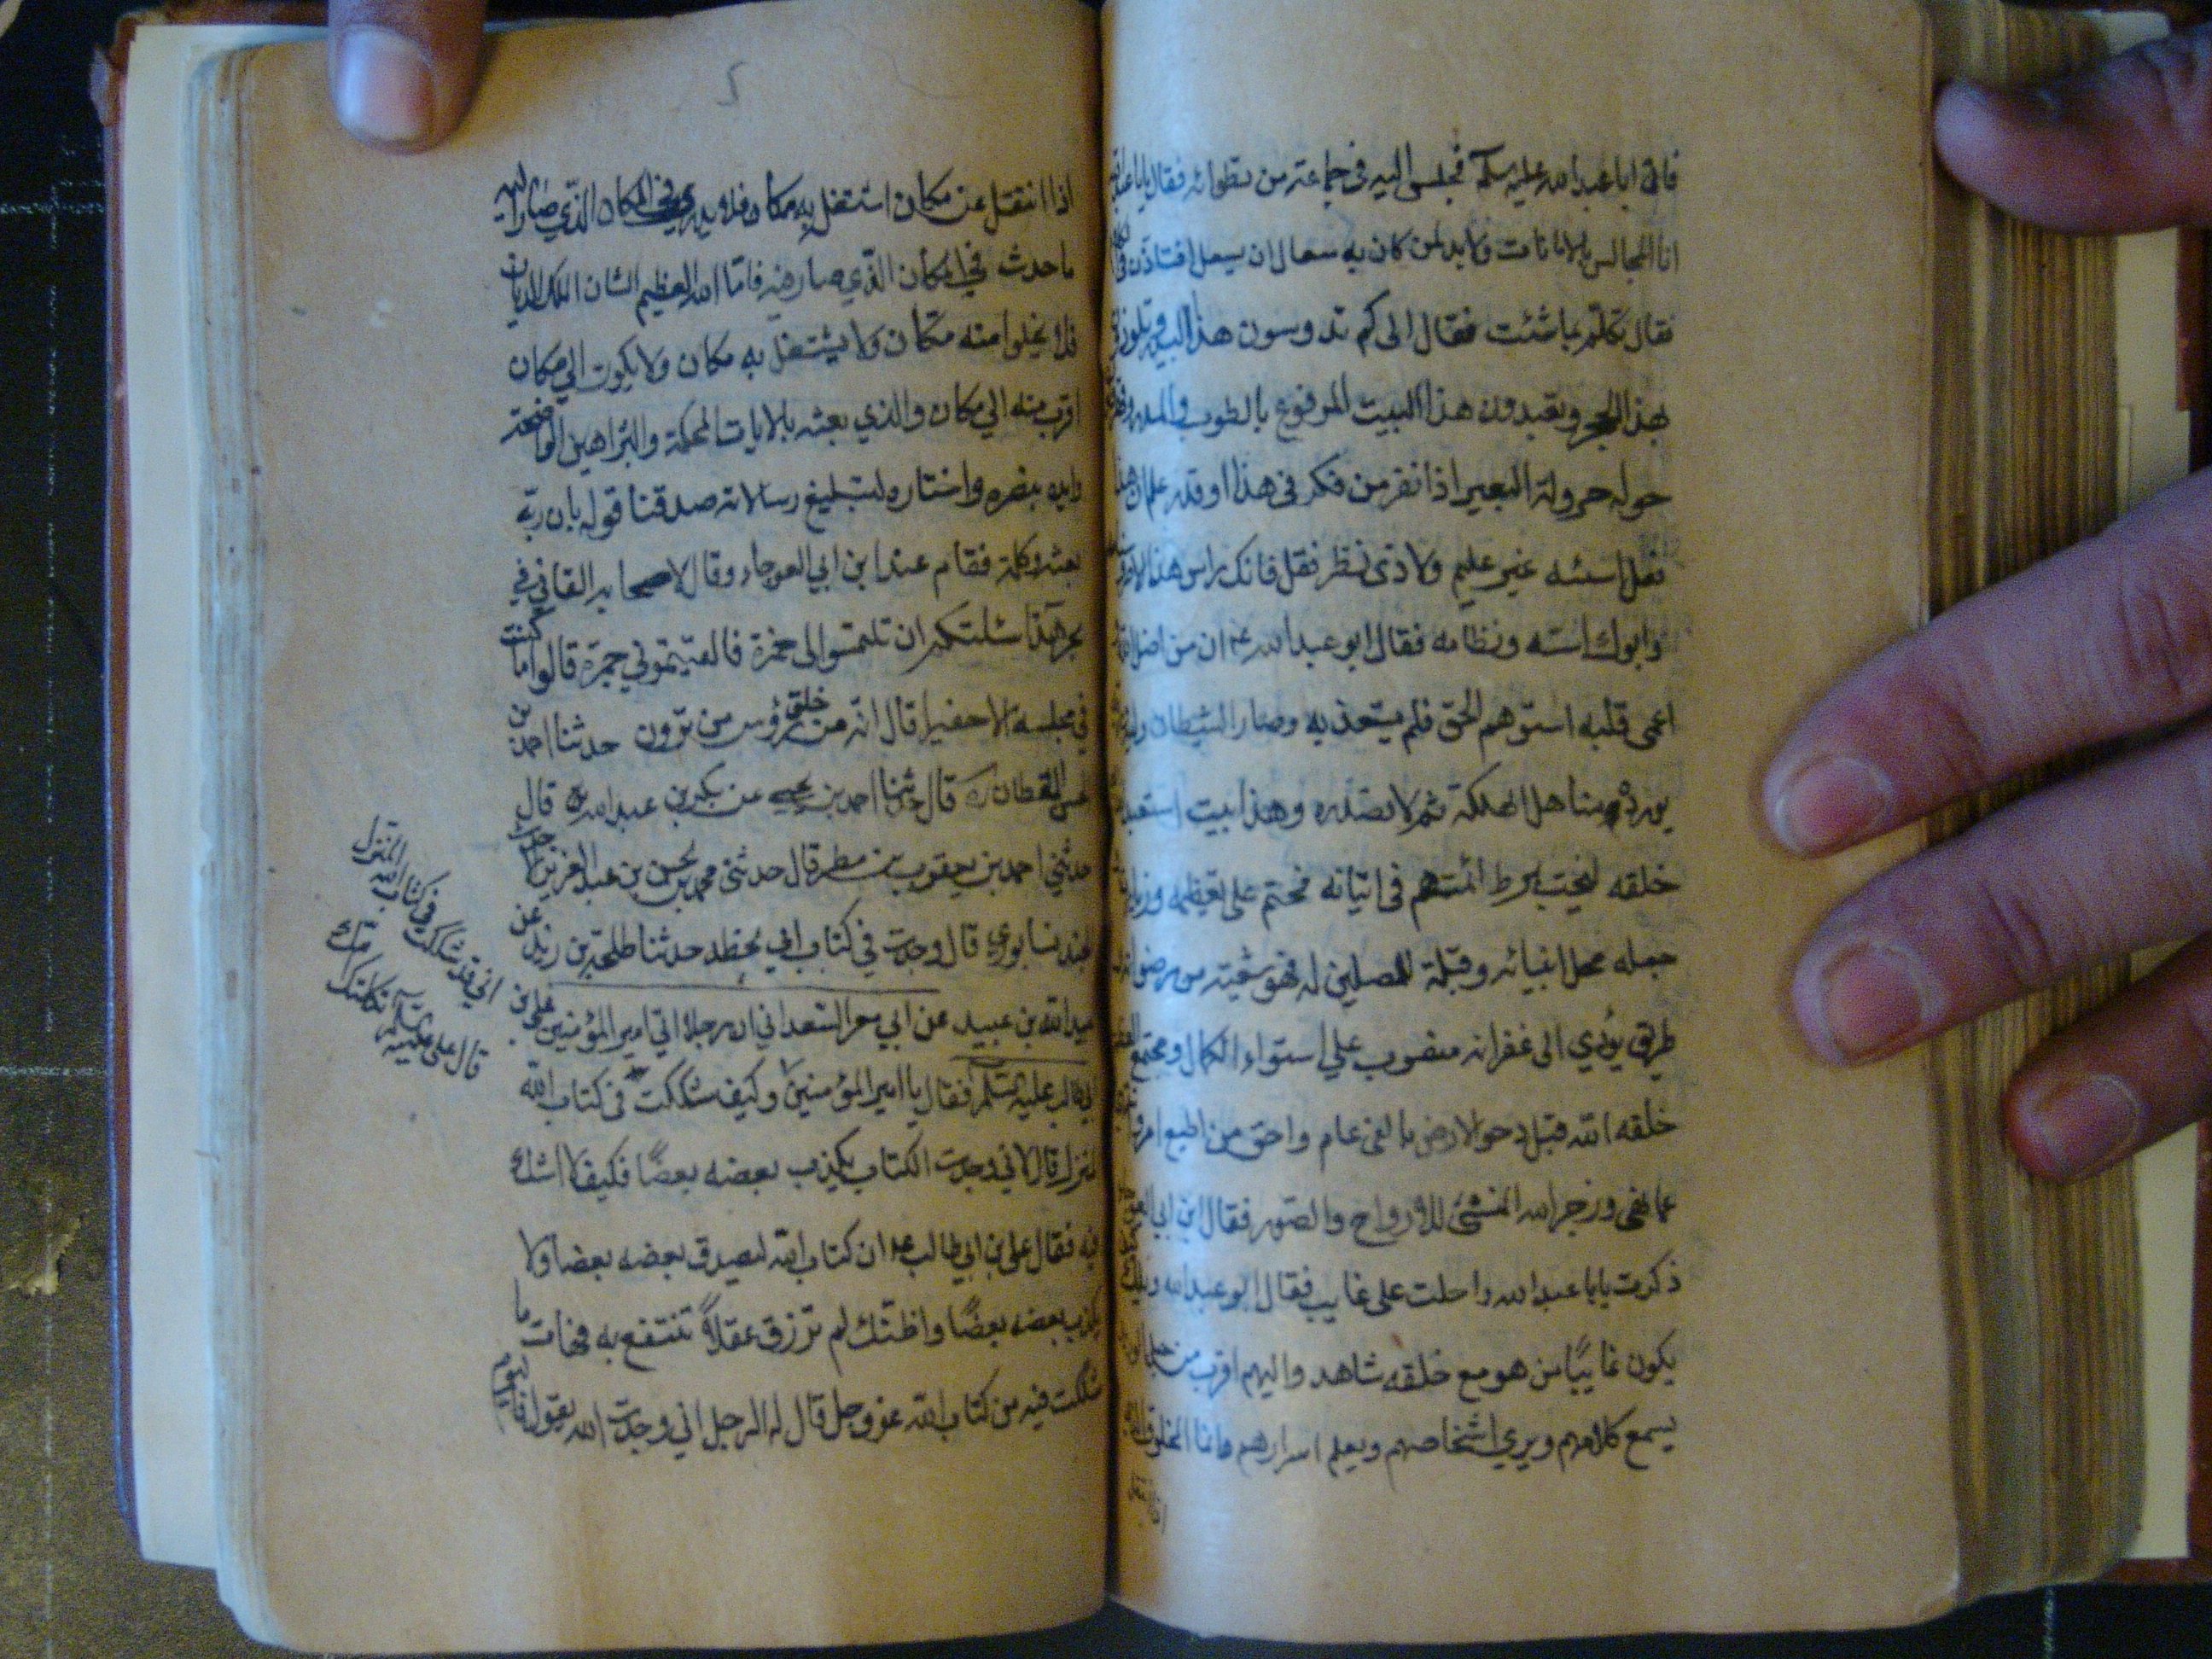 فاتى ابا عبد الله عليه سلم فجلس اليه في جماعته من نظرائه فقال يا ابا
ان المجالس بالامانات ولابد لمن كان به سعال ان يسعل افتاذن
فقال تكلم بما شئت فقال الى كم تدوسون هذا البيدر وتلوذون
بهذا الحجر وتعبدون هذا البيت المرفوع بالطوب والمدر
حوله هرولة البعير اذا نفر من فكر في هذا او قدر علم ان
فعل اسسه غير عليم ولا ذي نظر فقل فانك راس هذا
وابوك اسسه ونظامه فقال ابو عبد الله عم ان من اضله
اعمى قلبه استوهم الحق فلم يستعذبه وصار الشيطان
يورده مناهل الهلكة ثم لا يصدره وهذا بيت استعبد
خلقه ليختبر في اتيانه فحثهم على تعظيمه
جعله محل انبيائه وقبلة للمصلين له فهو شعبة من رضوانه
طريق يؤدي الى غفرانه منصوب على استواء الكمال ومجتمع
خلقه الله قبل دحو الارض بالفي عام واحق من اطيع
عما نهى وزجر الله المنشئ للارواح والصور فقال ابن ابي
ذكرت يابا عبد الله واحلت على غايب فقال ابو عبد الله ويلك
يكون غايبًا من هو مع خلقه شاهد واليهم اقرب من حبل
يسمع كلامهم ويري اشخاصهم ويعلم اسرارهم فانما المخلوق
اذا انتقل عن مكان اشتغل به مكان فلا يدري في المكان الذي صار اليه
ما حدث في المكان الذي صار منه فاما الله العظيم الشان الملك الديان
فلا يخلوا منه مكان ولا يشتغل به مكان ولا يكون الي مكان
اقرب منه الي مكان والذي بعثه بالايات المحكمة والبراهين الواضحة
وايده بنصره واختاره لتبليغ رسالاته صدقنا قوله بان ربه
بعثه وكلمه فقام عنه ابن ابي العوجاء وقال لاصحابه من القاني في
بحر هذا سئلتكم ان تلتمسوا لي خمرة فالقيتموني جمرة قالوا ما كنت
في مجلسه الا حقيرا قال انه ابن من خلق رؤس من ترون حدثنا احمد بن
الحسن القطان ره قال حدثنا احمد بن يحيى عن بكر بن عبد الله قال
حدثني احمد بن يعقوب بن مطر قال حدثني محمد بن الحسن بن عبد العزيز
الجندنسابوري قال وجدت في كتاب ابي بخطه حدثنا طلحة بن زيد عن
عبد الله بن عبيد عن ابي معمر السعداني ان رجلا اتى امير المؤمنين علي بن
ابي طالب عليه السلم فقال يا امير المؤمنين وكيف شككت في كتاب الله
المنزل قال لاني وجدت الكتاب يكذب بعضه بعضًا فكيف لا اشك
فيه فقال علي بن ابي طالب عم ان كتاب الله ليصدق بعضه بعضا ولا
يكذب بعضه بعضًا واظنك لم ترزق عقلاً تنتفع به فهات ما
شككت فيه من كتاب الله عز وجل قال له الرجل اني وجدت الله يقول فاليوم
اني قد شككت في كتاب الله المنزل
قال علي عليه سلم ثكلتك امك